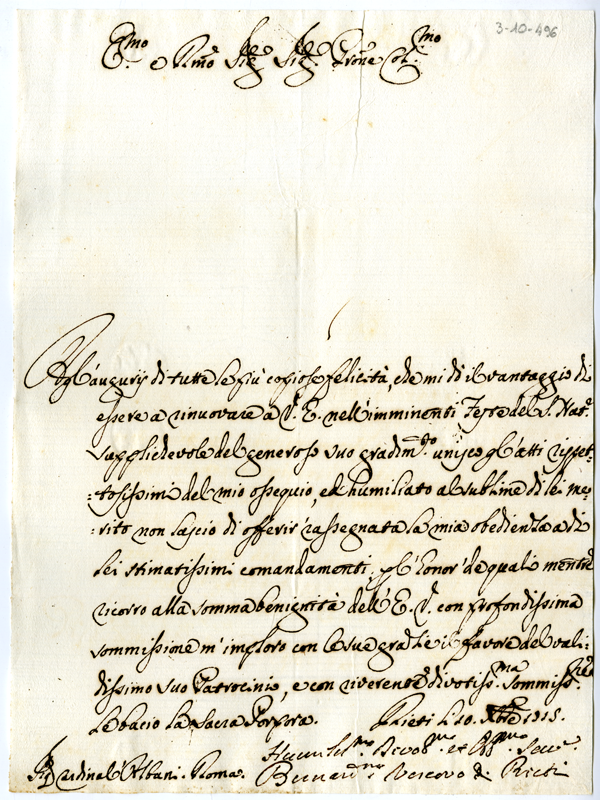 3-10-496
E.mo e R.mo Sig.r Sig.r P'rone Col.mo
Agl'augurij di tutte le più copiose felicità, che mi dà il vantaggio di
essere a rinuovare a V. E. nell'imminenti Feste del S. Nat.e
supplichevole del generoso suo gradim.to unisco gl'atti rispet-
:tosissimi del mio ossequio, ed humiliato al sublime di lei me-
:rito non lascio di offerir rassegnata la mia obedienza a di
lei stimatissimi comandamenti, p l'honor de quali mentre
ricorro alla somma benignità dell'E. V. con profondissima
sommissione m'imploro con le sue grazie il favore del vali-
dissimo suo Patrocinio, e con riverente divotiss.ma sommiss.ne
le bacio la Sacra Porpora. Rieti li 20. Xbre 1715.
Humil.mo Divot.mo et Obb.mo Serv.e
Sig.r Cardinal Albani. Roma. Bernard.no Vescovo di Rieti